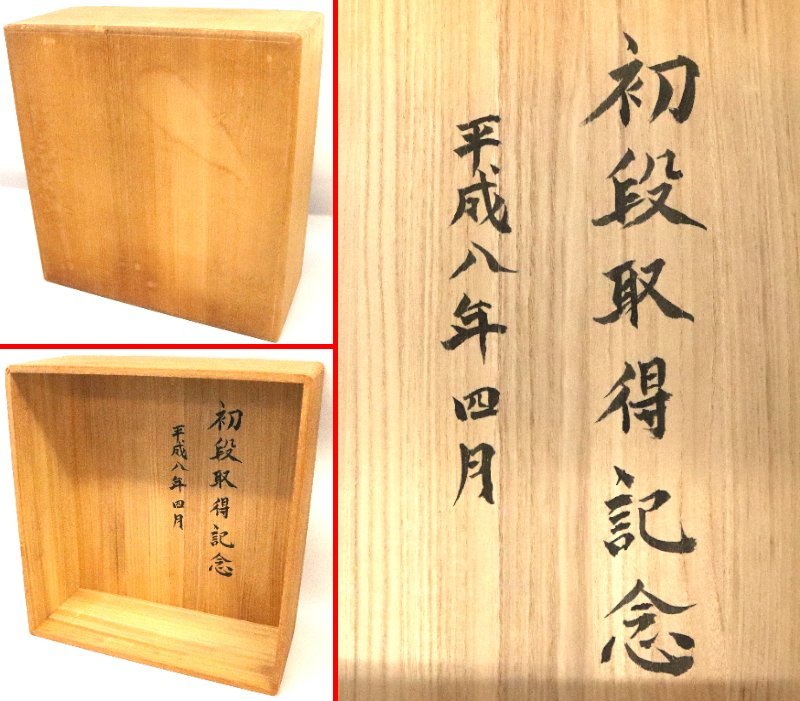 初段取得記念
平成八年四月
初段取得記念
平成八年四月